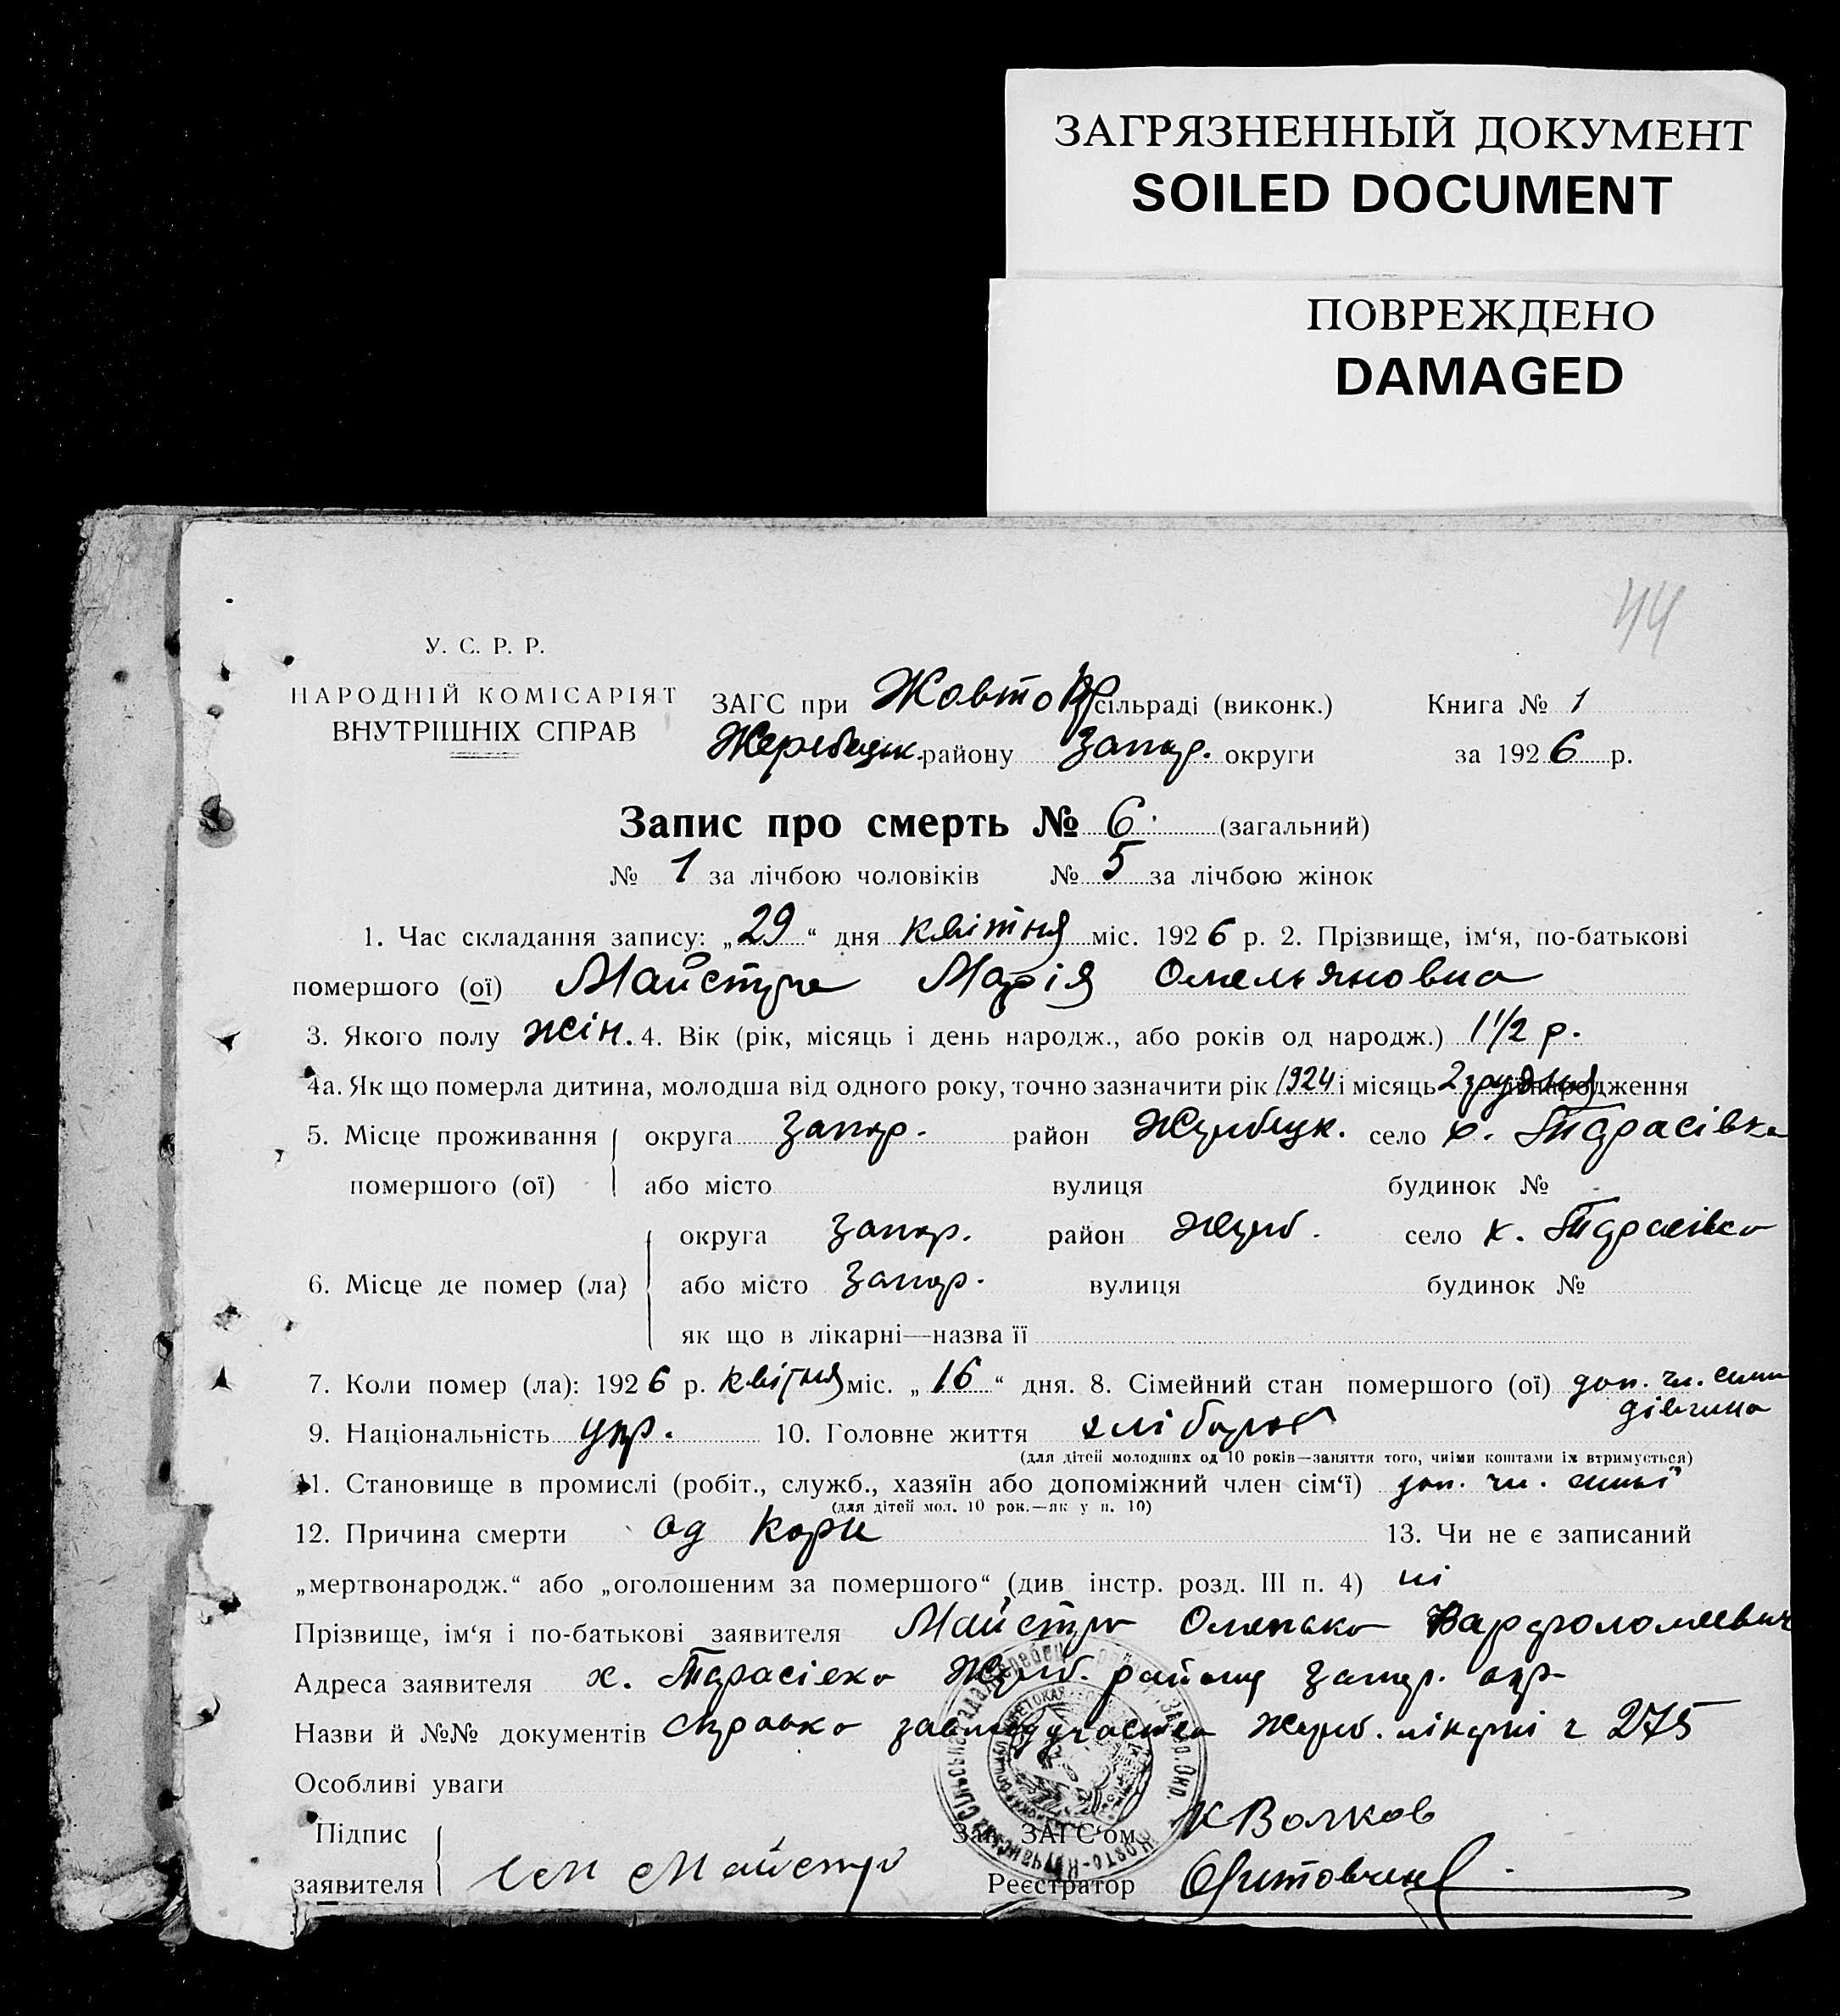 ЗАГРЯЗНЕННЫЙ ДОКУМЕНТ
SOILED DOCUMENT
ПОВРЕЖДЕНО
DAMAGED
44
У. С. Р. Р.
НАРОДНІЙ КОМІСАРІЯТ
ВНУТРІШНІХ СПРАВ
ЗАГС при Жовто сільраді (виконк.) Книга № 1
Жеребецьк. району Запор. округи за 1926 р.
Запис про смерть № 6. (загальний)
№ 1 за лічбою чоловіків № 5 за лічбою жінок
1. Час складання запису: „29“ дня квітня міс. 1926 р. 2. Прізвище, ім‘я, по-батькові
помершого (ої) Майстро Марія Омельяновна
3. Якого полу жін. 4. Вік (рік, місяць і день народж., або років од народж.) 1 1/2 р.
4а. Як що померла дитина, молодша від одного року, точно зазначити рік 1924 і місяць 2 грудня її народження
5. Місце проживання округа Запор. район Жеребецк. село х. Тарасівка
помершого (ої) або місто вулиця будинок №
округа Запор. район Жереб. село х. Тарасівка
6. Місце де помер (ла) або місто Запор. вулиця будинок №
як що в лікарні—назва її
7. Коли помер (ла): 1926 р. квітня міс. „16“ дня. 8. Сімейний стан помершого (ої) доп. чл. сими
дівчина
9. Національність укр. 10. Головне життя хлібороб
(для дітей молодших од 10 років—заняття того, чиїми коштами їх втримується)
11. Становище в промислі (робіт., служб., хазяїн або допоміжний член сім‘ї) доп. чл. симьї
(для дітей мол. 10 рок.—як у п. 10)
12. Причина смерти од кори 13. Чи не є записаний
„мертвонародж.“ або „оголошеним за помершого“ (див інстр. розд. III п. 4) ні
Прізвище, ім‘я і по-батькові заявителя Майстро Омелько Варфоломеевич
Адреса заявителя х. Тарасівка Жереб. району Запор. окр
Назви й №№ документів Справка Жереб. лікарні 275
Особливі уваги
Підпис Зав. ЗАГС‘ом К Волков
заявителя Майстро Реєстратор